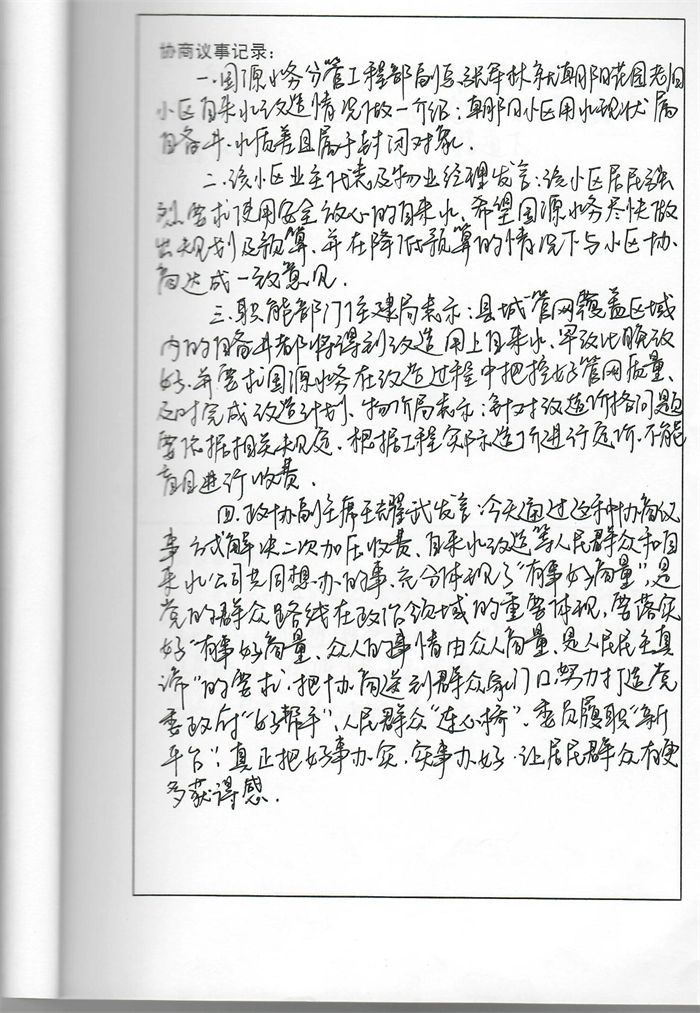 协商议事记录：
一.国源水务分管工程部副总张军林就朝阳花园老旧
小区自来水改造情况做一介绍：朝阳小区用水现状属
自备井.水质差且属于封闭对象.
二.该小区业主代表及物业经理发言：该小区居民强
烈要求使用安全放心的自来水、希望国源水务尽快做
出规划及预算、并在降低预算的情况下与小区协.
商达成一致意见.
三.职能部门住建局表示：县城管网覆盖区域
内的自备井都将得到改造用上自来水、早改比晚改
好.并要求国源水务在改造过程中把控好管网质量、
及时完成改造计划、物价局表示：针对改造价格问题
要依据相关规定、根据工程实际造价进行定价.不能
盲目进行收费.
四.政协副主席王耀武发言：今天通过这种协商议
事方式解决二次加压收费、自来水改造等人民群众和自
来水公司共同想办的事、充分体现了“有事好商量”,是
党的群众路线在政治领域的重要体现,要落实
好“有事好商量、众人的事情由众人商量、是人民民主真
谛”的要求.把协商送到群众家门口,努力打造党
委政府“好帮手”、人民群众“连心桥”、委员履职“新
平台”、真正把好事办实.实事办好.让居民群众有更
多获得感.